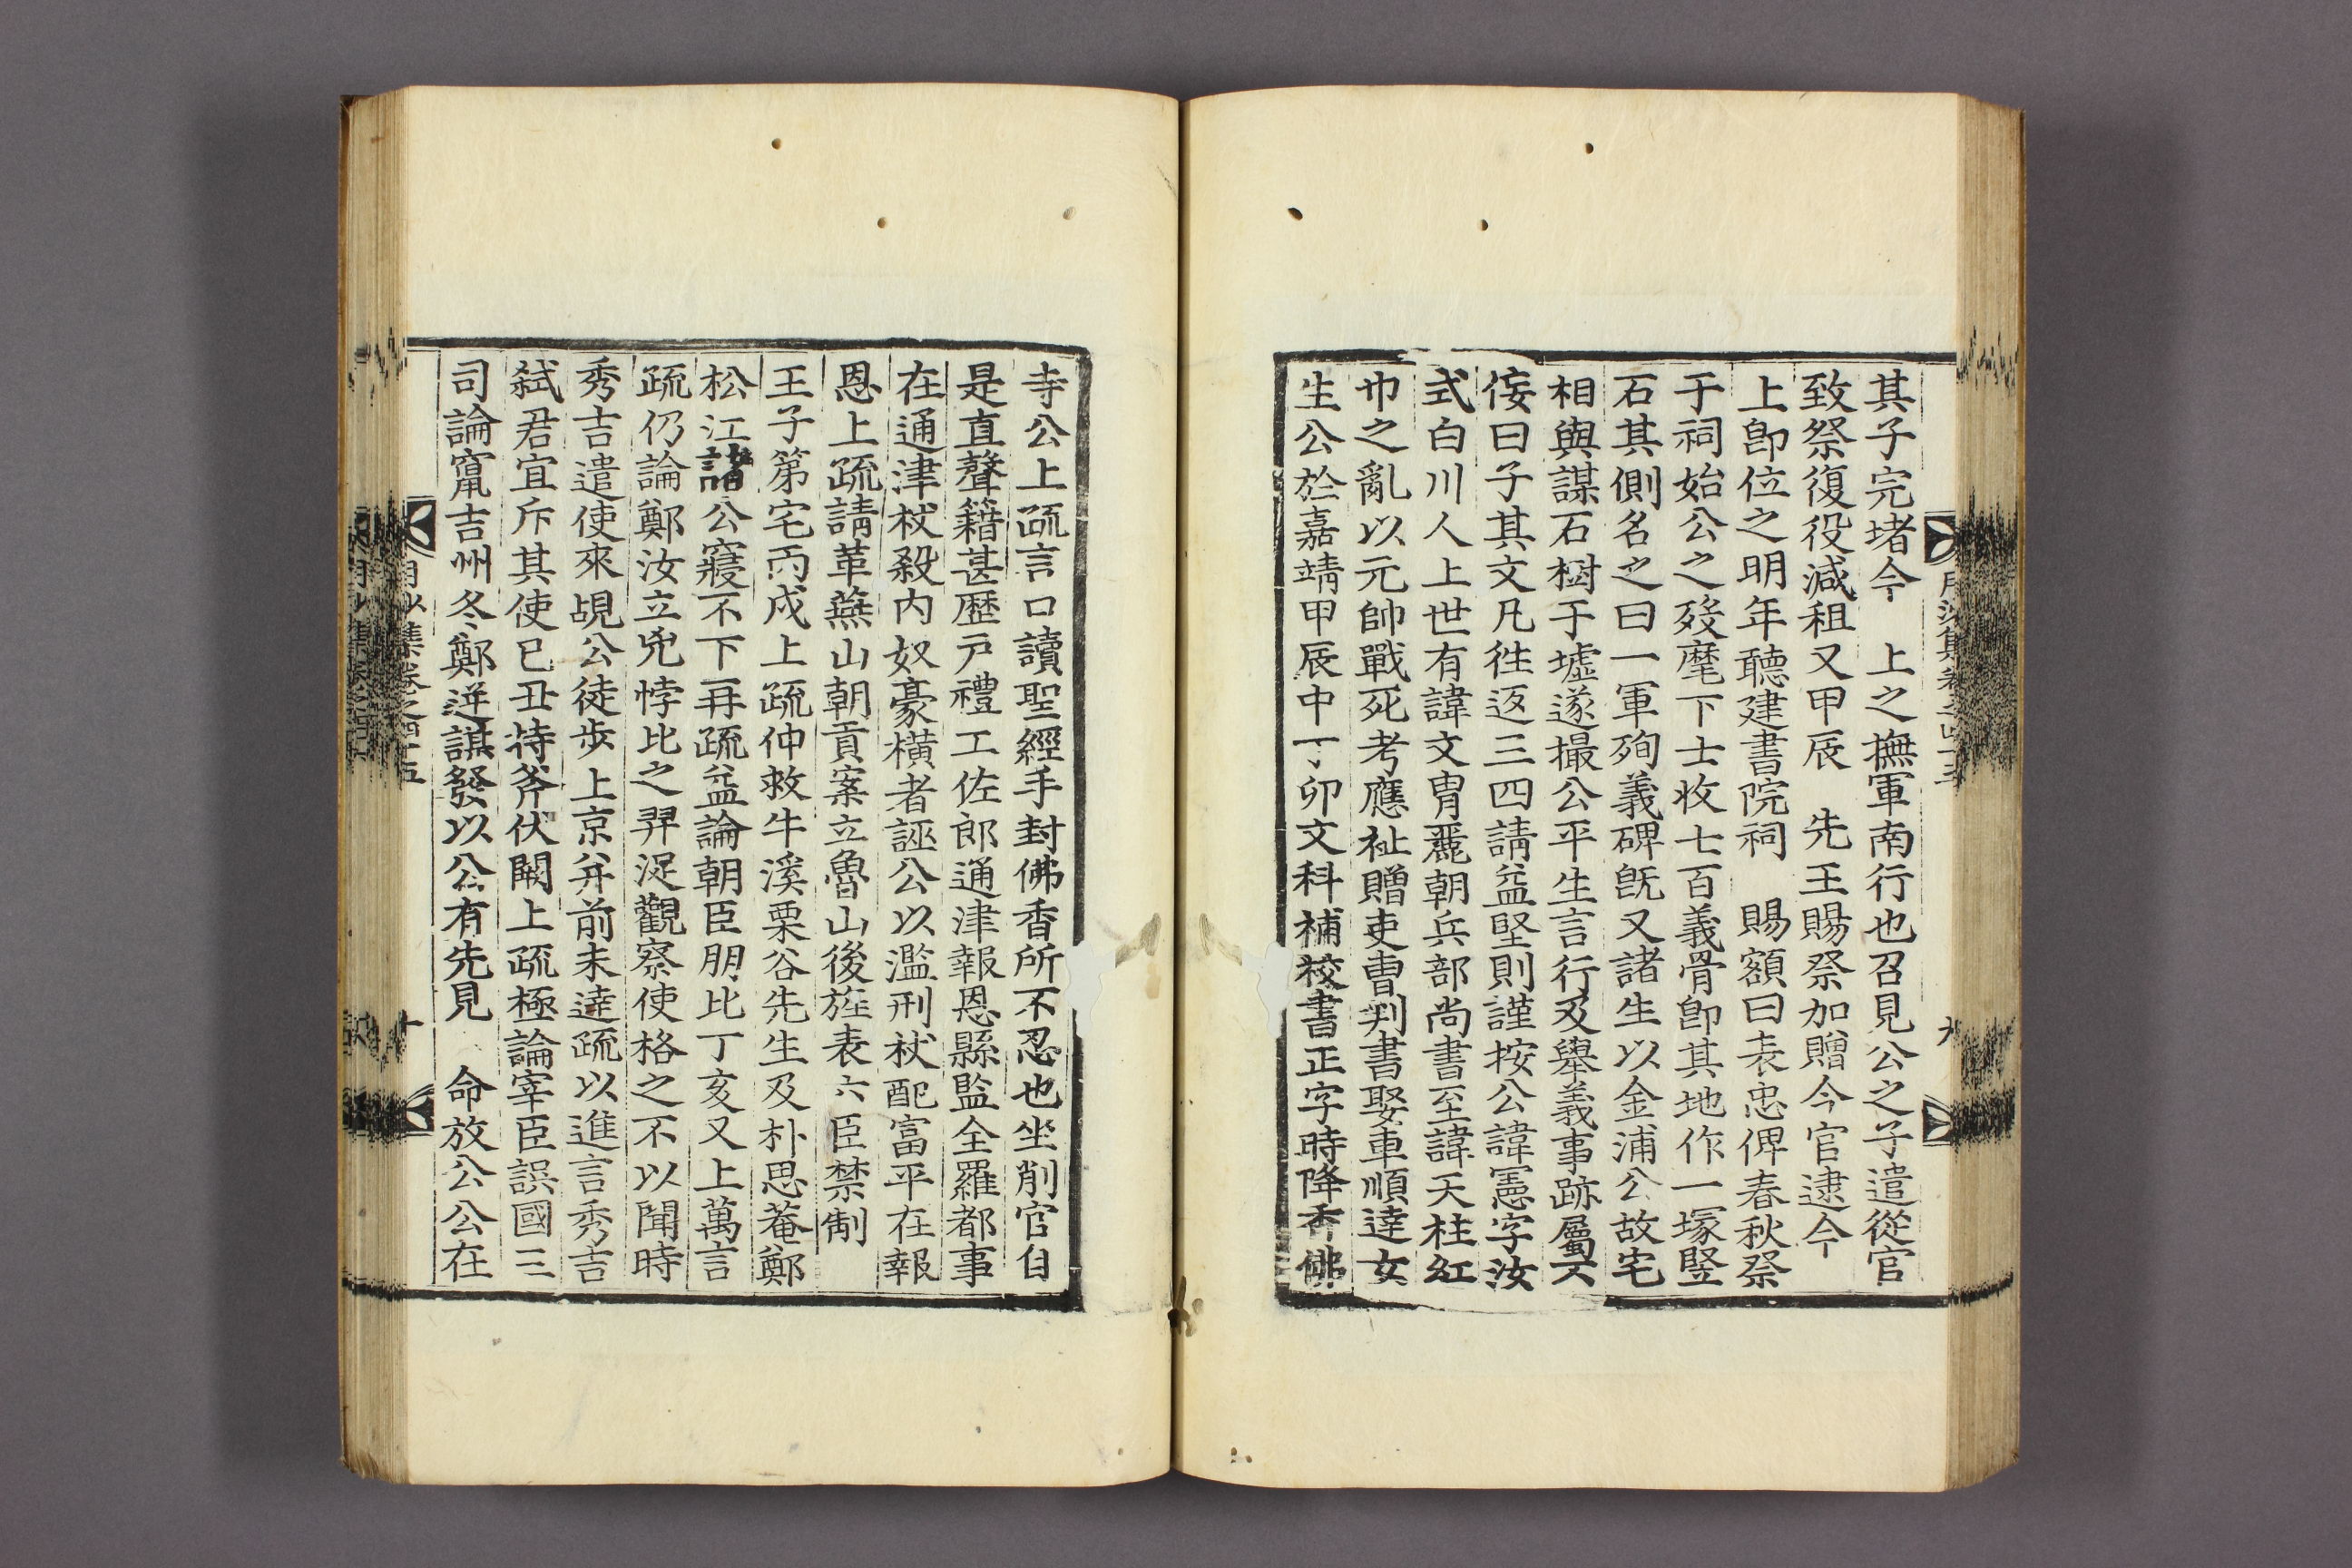 其子完堵今 上之撫軍南行也召見公之子遣從官
致祭復役減租又甲辰 先王賜祭加贈今官逮今
上即位之明年聽建書院祠 賜額曰表忠俾春秋祭
于祠始公之歿麾下士收七百義骨即其地作一塚竪
石其側名之曰一軍殉義碑旣又諸生以金浦公故宅
相與謀石樹于墟遂撮公平生言行及舉義事跡屬不
佞曰子其文凡徃返三四請益堅則謹按公諱憲字汝
式白川人上世有諱文胄麗朝兵部尙書至諱天柱紅
巾之亂以元帥戰死考應祉贈吏曺判書娶車順達女
生公於嘉靖甲辰中丁卯文科補校書正字時降香佛
寺公上疏言口讀聖經手封佛香所不忍也坐削官自
是直聲籍甚歷戶禮工佐郎通津報恩縣監全羅都事
在通津杖殺內奴豪橫者誣公以濫刑杖配富平在報
恩上疏請革蕪山朝貢案立魯山後旌表六臣禁制
王子第宅丙戌上疏仲救牛溪栗谷先生及朴思菴鄭
松江諸公寢不下再疏益論朝臣朋比丁亥又上萬言
疏仍論鄭汝立兇悖比之羿浞觀察使格之不以聞時
秀吉遣使來覘公徒步上京幷前未達疏以進言秀吉
弑君宜斥其使己丑持斧伏闕上疏極論宰臣誤國三
司論竄吉州冬鄭逆謀發以公有先見 命放公公在
月沙集卷之四十五
九
十